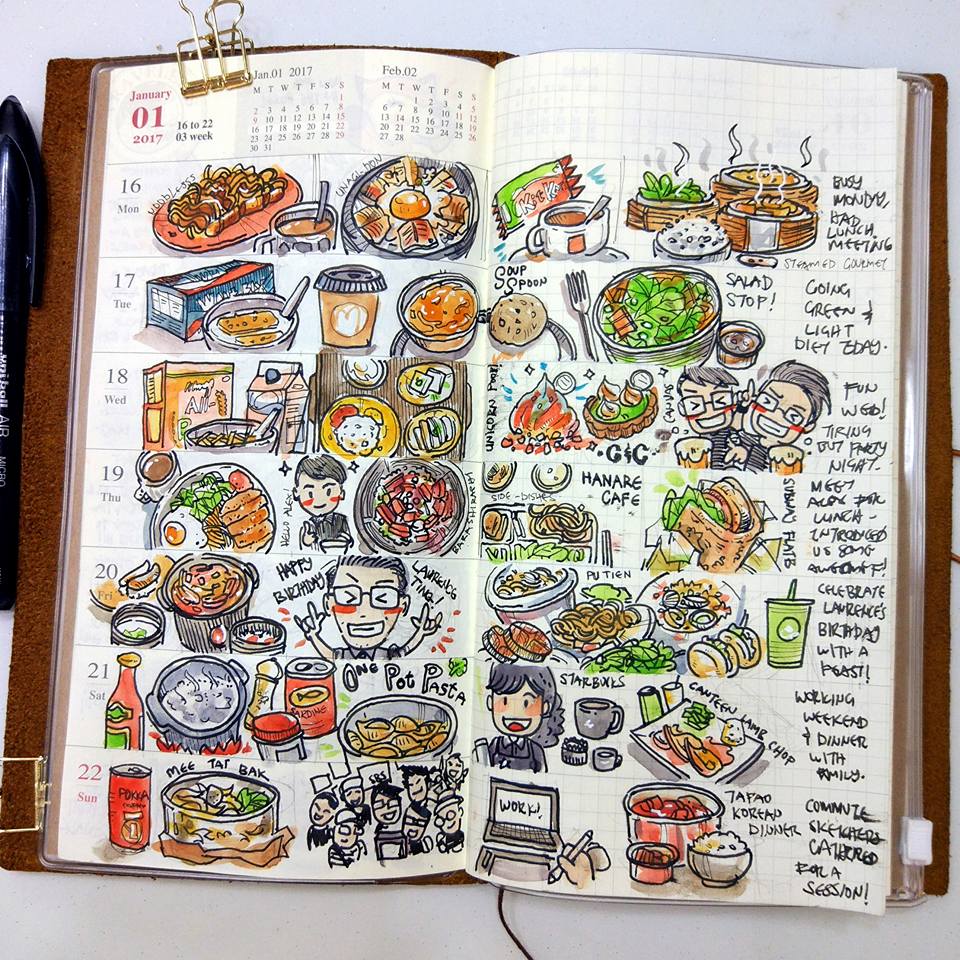 January
01
2017
16 to 22
03 week
Jan.01 2017
M T W T F S S
1
2 3 4 5 6 7 8
9 10 11 12 13 14 15
16 17 18 19 20 21 22
23 24 25 26 27 28 29
30 31
Feb.02
M T W T F S S
1 2 3 4 5
6 7 8 9 10 11 12
13 14 15 16 17 18 19
20 21 22 23 24 25 26
27 28
16
Mon
UNAGI-DON
KitKat
BUSY
MONDAY,
HAD
LUNCH
MEETING
STEAMED GOURMET
17
Tue
SOUP
SPOON
SALAD
STOP!
GOING
GREEN &
LIGHT
DIET TODAY.
18
Wed
G&G
FUN
WED!
TIRING
BUT PARTY
NIGHT.
19
Thu
HELLO ALEX!
SIDE-DISHES
HANARE
CAFE
SUBWAY FLATB
MEET
ALEX FOR
LUNCH -
INTRODUCED
US SOME
20
Fri
HAPPY
BIRTHDAY
LAURENCE
TING!
PUTIEN
CELEBRATE
LAURENCE'S
BIRTHDAY
WITH A
FEAST!
21
Sat
SARDINE
ONE
POT PASTA
STARBUCKS
CANTEEN LAMB CHOP
WORKING
WEEKEND
& DINNER
WITH
FAMILY.
22
Sun
POKKA
MEE TAI BAK
WORK!
TAPAO
KOREAN
DINNER
SKETCHERS
GATHERED
FOR A
SESSION!